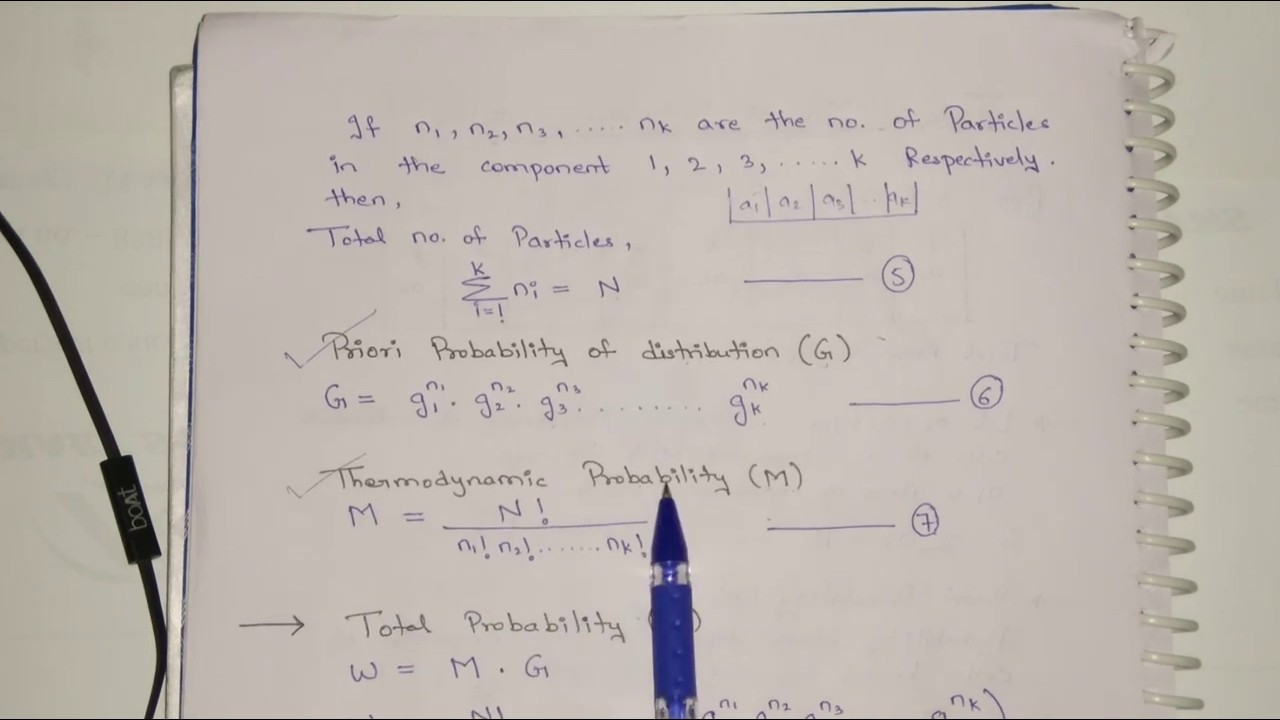 If n₁, n₂, n₃, ..... nₖ are the no. of Particles
in the component 1, 2, 3, ...... k Respectively.
then,
|a₁|a₂|a₃|..|aₖ|
Total no. of Particles,
k
∑ nᵢ = N ——— ⑤
i=1
Priori Probability of distribution (G)
G = g₁ⁿ¹ . g₂ⁿ² . g₃ⁿ³ ......... gₖⁿᵏ ——— ⑥
Thermodynamic Probability (M)
M = N! / n₁! n₂! ....... nₖ! ——— ⑦
→ Total Probability )
W = M . G
N! n₁ n₂ n₃ nₖ)
boAt